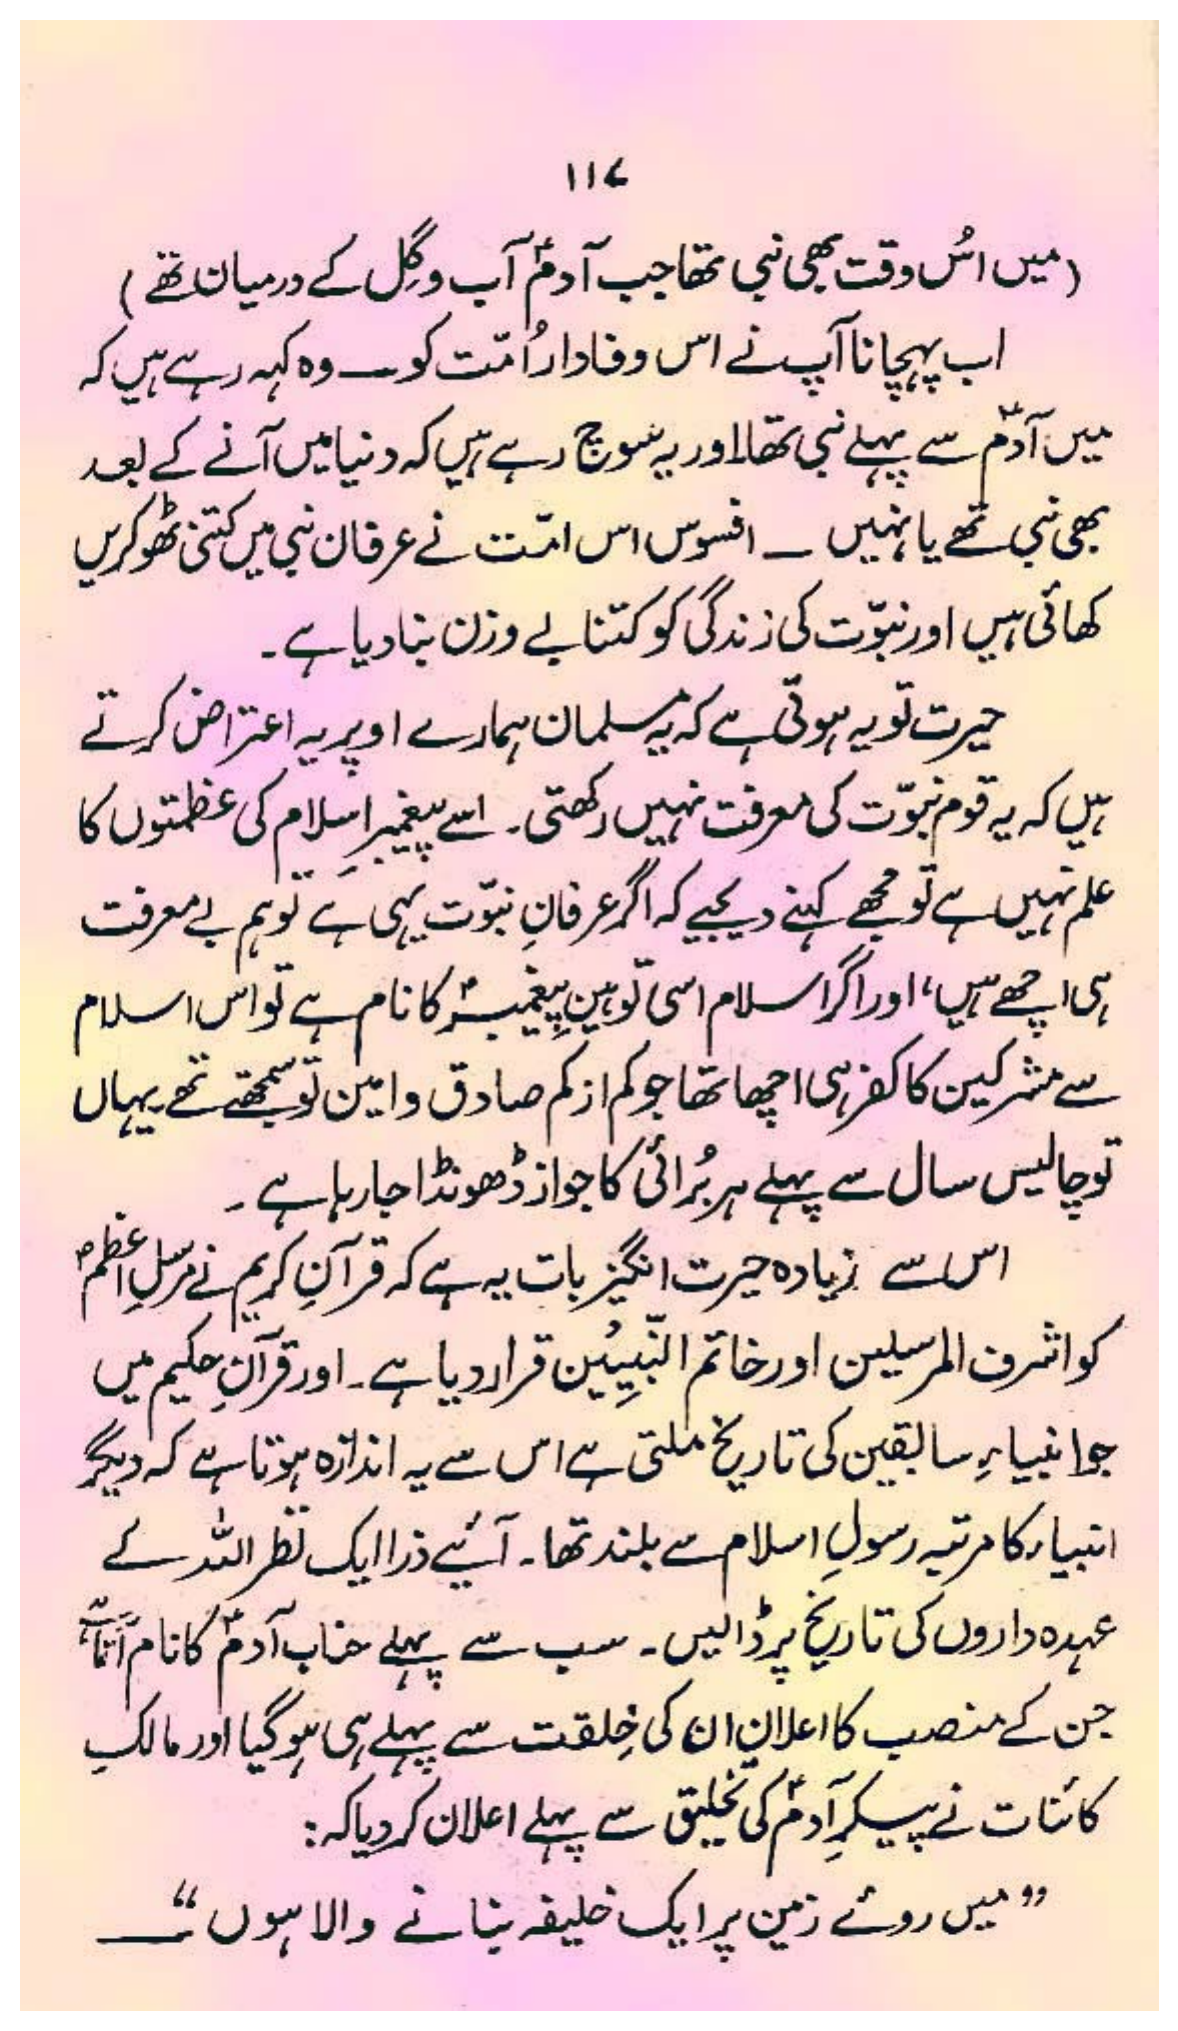 ۱۱۷
(میں اسُ وقت بھی نبی تھا جب آدمؑ آب و گِل کے درمیان تھے)
اب پہچانا آپ نے اس وفادار اُمّت کو ــ وہ کہہ رہے ہیں کہ
میں آدمؑ سے پہلے نبی تھا اور یہ سوچ رہے ہیں کہ دنیا میں آنے کے بعد
بھی نبی تھے یا نہیں ــ افسوس اس امّت نے عرفان نبی میں کتنی ٹھوکریں
کھائی ہیں اور نبوّت کی زندگی کو کتنا بے وزن بنا دیا ہے۔
حیرت تو یہ ہوتی ہے کہ یہ مسلمان ہمارے اوپر یہ اعتراض کرتے
ہیں کہ یہ قوم نبوّت کی معرفت نہیں رکھتی۔ اسے پیغمبرِ اسلام کی عظمتوں کا
علم نہیں ہے تو مجھے کہنے دیجیے کہ اگر عرفانِ نبوّت یہی ہے تو ہم بے معرفت
ہی اچھے ہیں، اور اگر اسلام اسی توہینِ پیغمبرؐ کا نام ہے تو اس اسلام
سے مشرکین کا کفر ہی اچھا تھا جو کم از کم صادق و امین تو سمجھتے تھے یہاں
تو چالیس سال سے پہلے ہر بُرائی کا جواز ڈھونڈا جا رہا ہے ۔
اس سے زیادہ حیرت انگیز بات یہ ہے کہ قرآنِ کریم نے مرسلِ اعظمؐ
کو اشرف المرسلین اور خاتم النّبیِیُین قرار دیا ہے۔ اور قرآنِ حکیم میں
جو انبیاءِ سابقین کی تاریخ ملتی ہے اس سے یہ اندازہ ہوتا ہے کہ دیگر
انبیاء کا مرتبہ رسولِ اسلام سے بلند تھا۔ آئیے ذرا ایک نظر اللہ کے
عہدہ داروں کی تاریخ پر ڈالیں۔ سب سے پہلے جناب آدمؑ کا نام آتا ہے
جن کے منصب کا اعلان ان کی خِلقت سے پہلے ہی ہو گیا اور مالکِ
کائنات نے پیکرِ آدمؑ کی تخلیق سے پہلے اعلان کر دیا کہ:
”میں روئے زمین پر ایک خلیفہ بنانے والا ہوں“ ــ